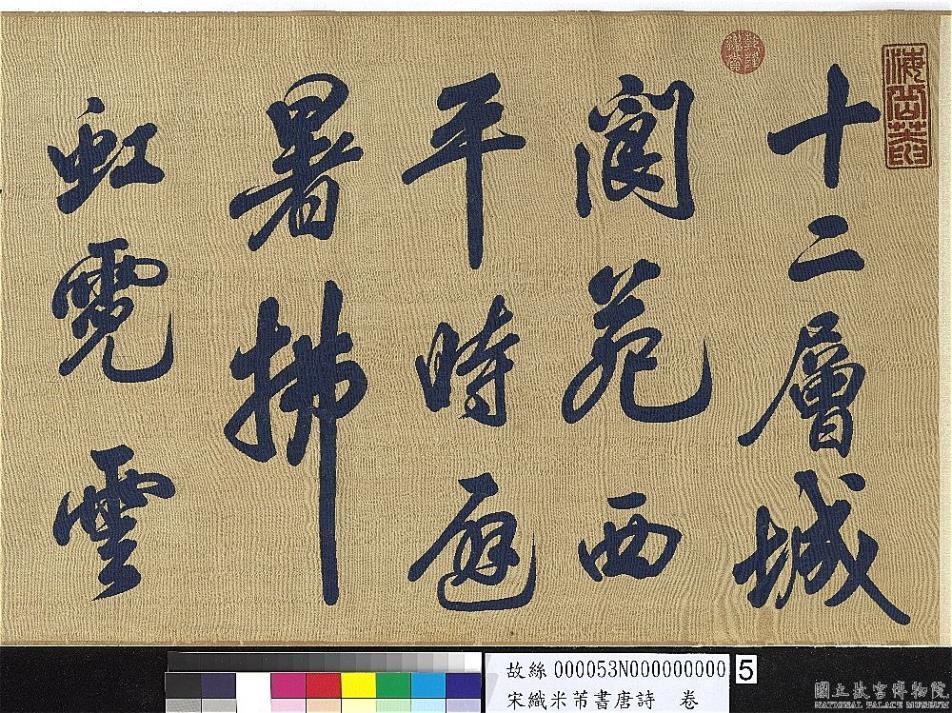 十二層城
閬苑西
平時避
暑拂
虹霓雲
故絲 000053N000000000 5
宋織米芾書唐詩 卷
國立故宮博物院
NATIONAL PALACE MUSEUM